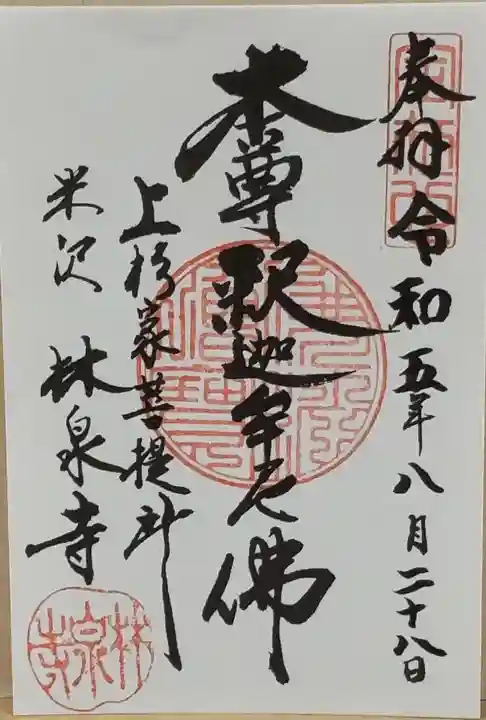 奉拝 令和五年八月二十八日
本尊釈迦牟尼佛
上杉家菩提所
米沢 林泉寺
林泉寺